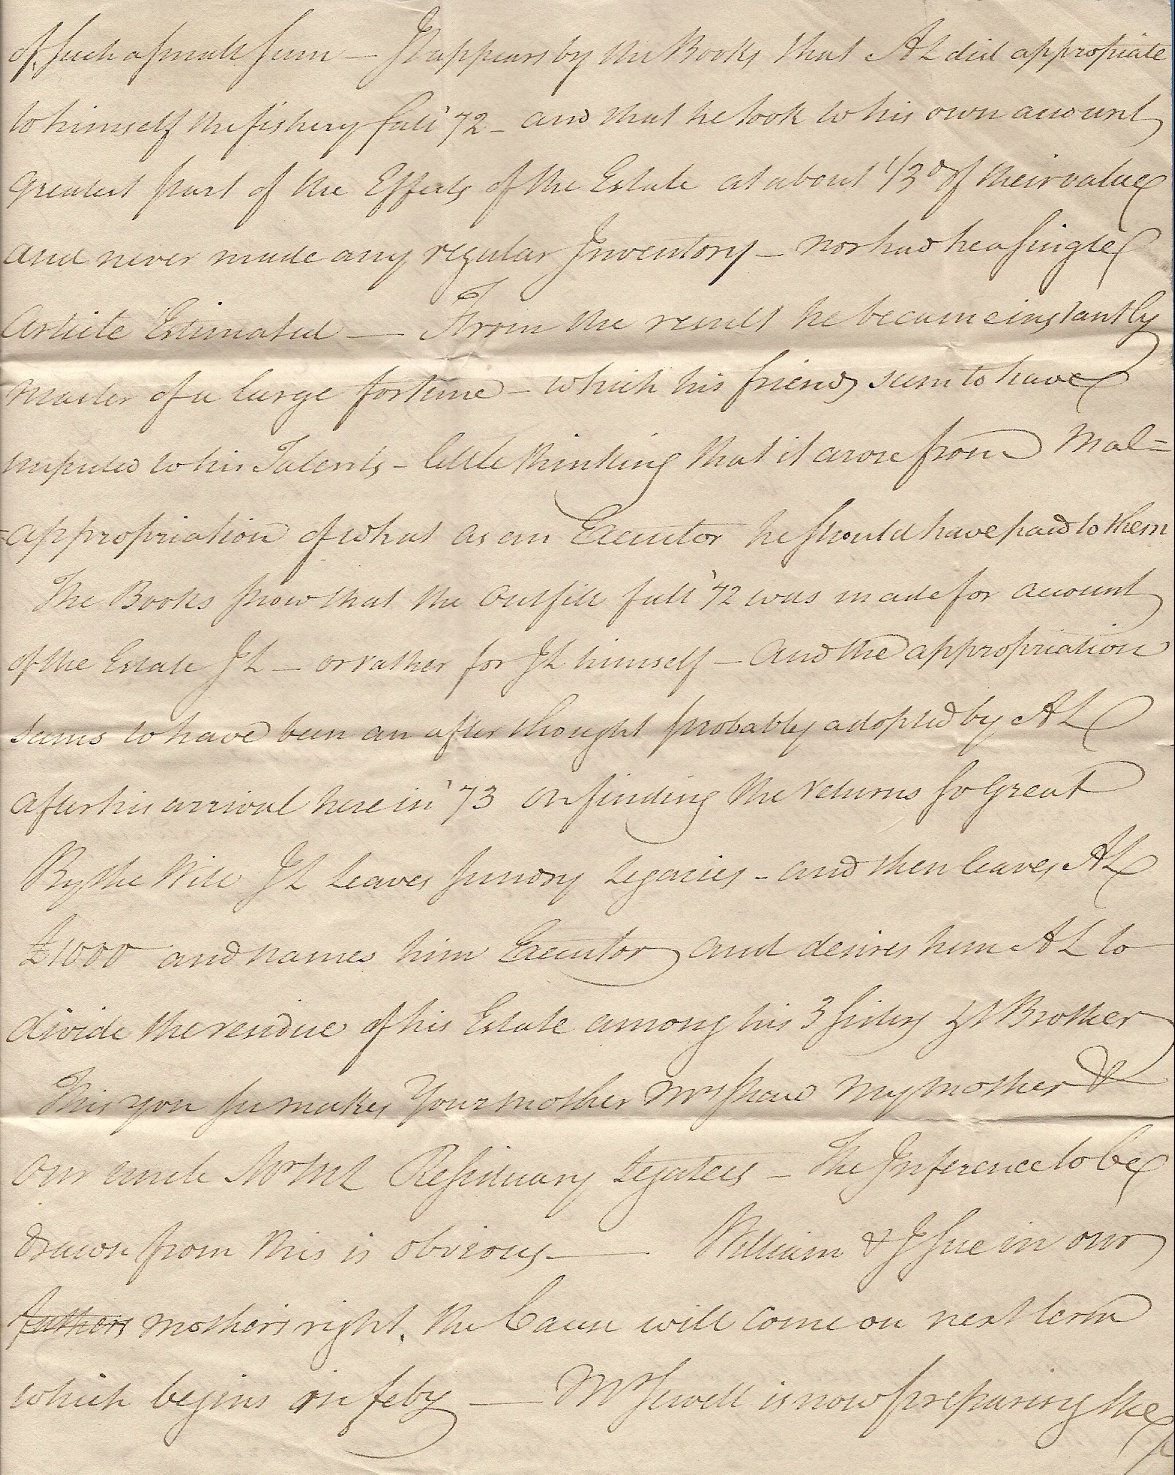 of such a small sum — It appears by the Books that AL did appropiate
to himself the fishery fall '72 – and that he took to his own account
greatest part of the Effects of the Estate at about 1/3d of their value
and never made any regular Inventory – nor had he a single
Article Estimated — From the result he became instantly
Master of a large fortune – which his friends seem to have
imputed to his Talents – little thinking that it arose from Mal=
=appropriation of what as an Executor he should have paid to them
The Books prow that the Outfitt fall '72 was made for account
of the Estate JL – or rather for JL himself – And the appropriation
seems to have been an after thought probably adopted by AL
after his arrival here in '73 on finding the returns so great
By the Will JL Leaves sundry Legacies – and then leaves AL
£1000 and names him Executor and desires him AL to
divide the residue of his Estate among his 3 sisters & Brother
This you see makes Your mother Mrs Shaw My mother &
our uncle Wm ML Resituary Legatees – The Inference to be
drawn from this is obvious — William & I sue in our
fathers mothers right. The Cause will come on next term
which begins in feby — Mr Sewell is now preparing the